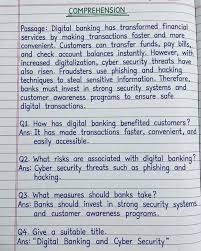 COMPREHENSION
Passage: Digital banking has transformed financial
services by making transactions faster and more
convenient. Customers can transfer funds, pay bills,
and check account balances instantly. However, with
increased digitalization, cyber security threats have
also risen. Fraudsters use phishing and hacking
techniques to steal sensitive information. Therefore,
banks must invest in strong security systems and
customer awareness programs to ensure safe
digital transactions.
Q1. How has digital banking benefited customers?
Ans: It has made transactions faster, convenient, and
easily accessible.
Q2. What risks are associated with digital banking?
Ans: Cyber security threats such as phishing and
hacking.
Q3. What measures should banks take?
Ans: Banks should invest in strong security systems
and customer awareness programs.
Q4. Give a suitable title.
Ans: "Digital Banking and Cyber Security"